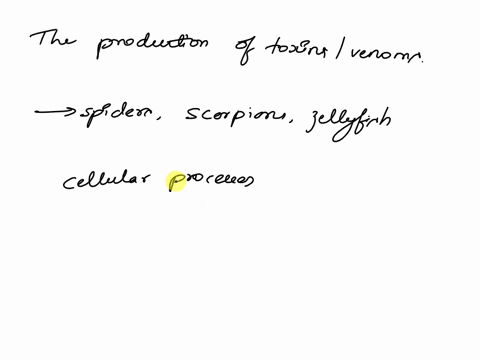 The production of toxins/venoms.
→ spiders, scorpions, jellyfish
cellular processes